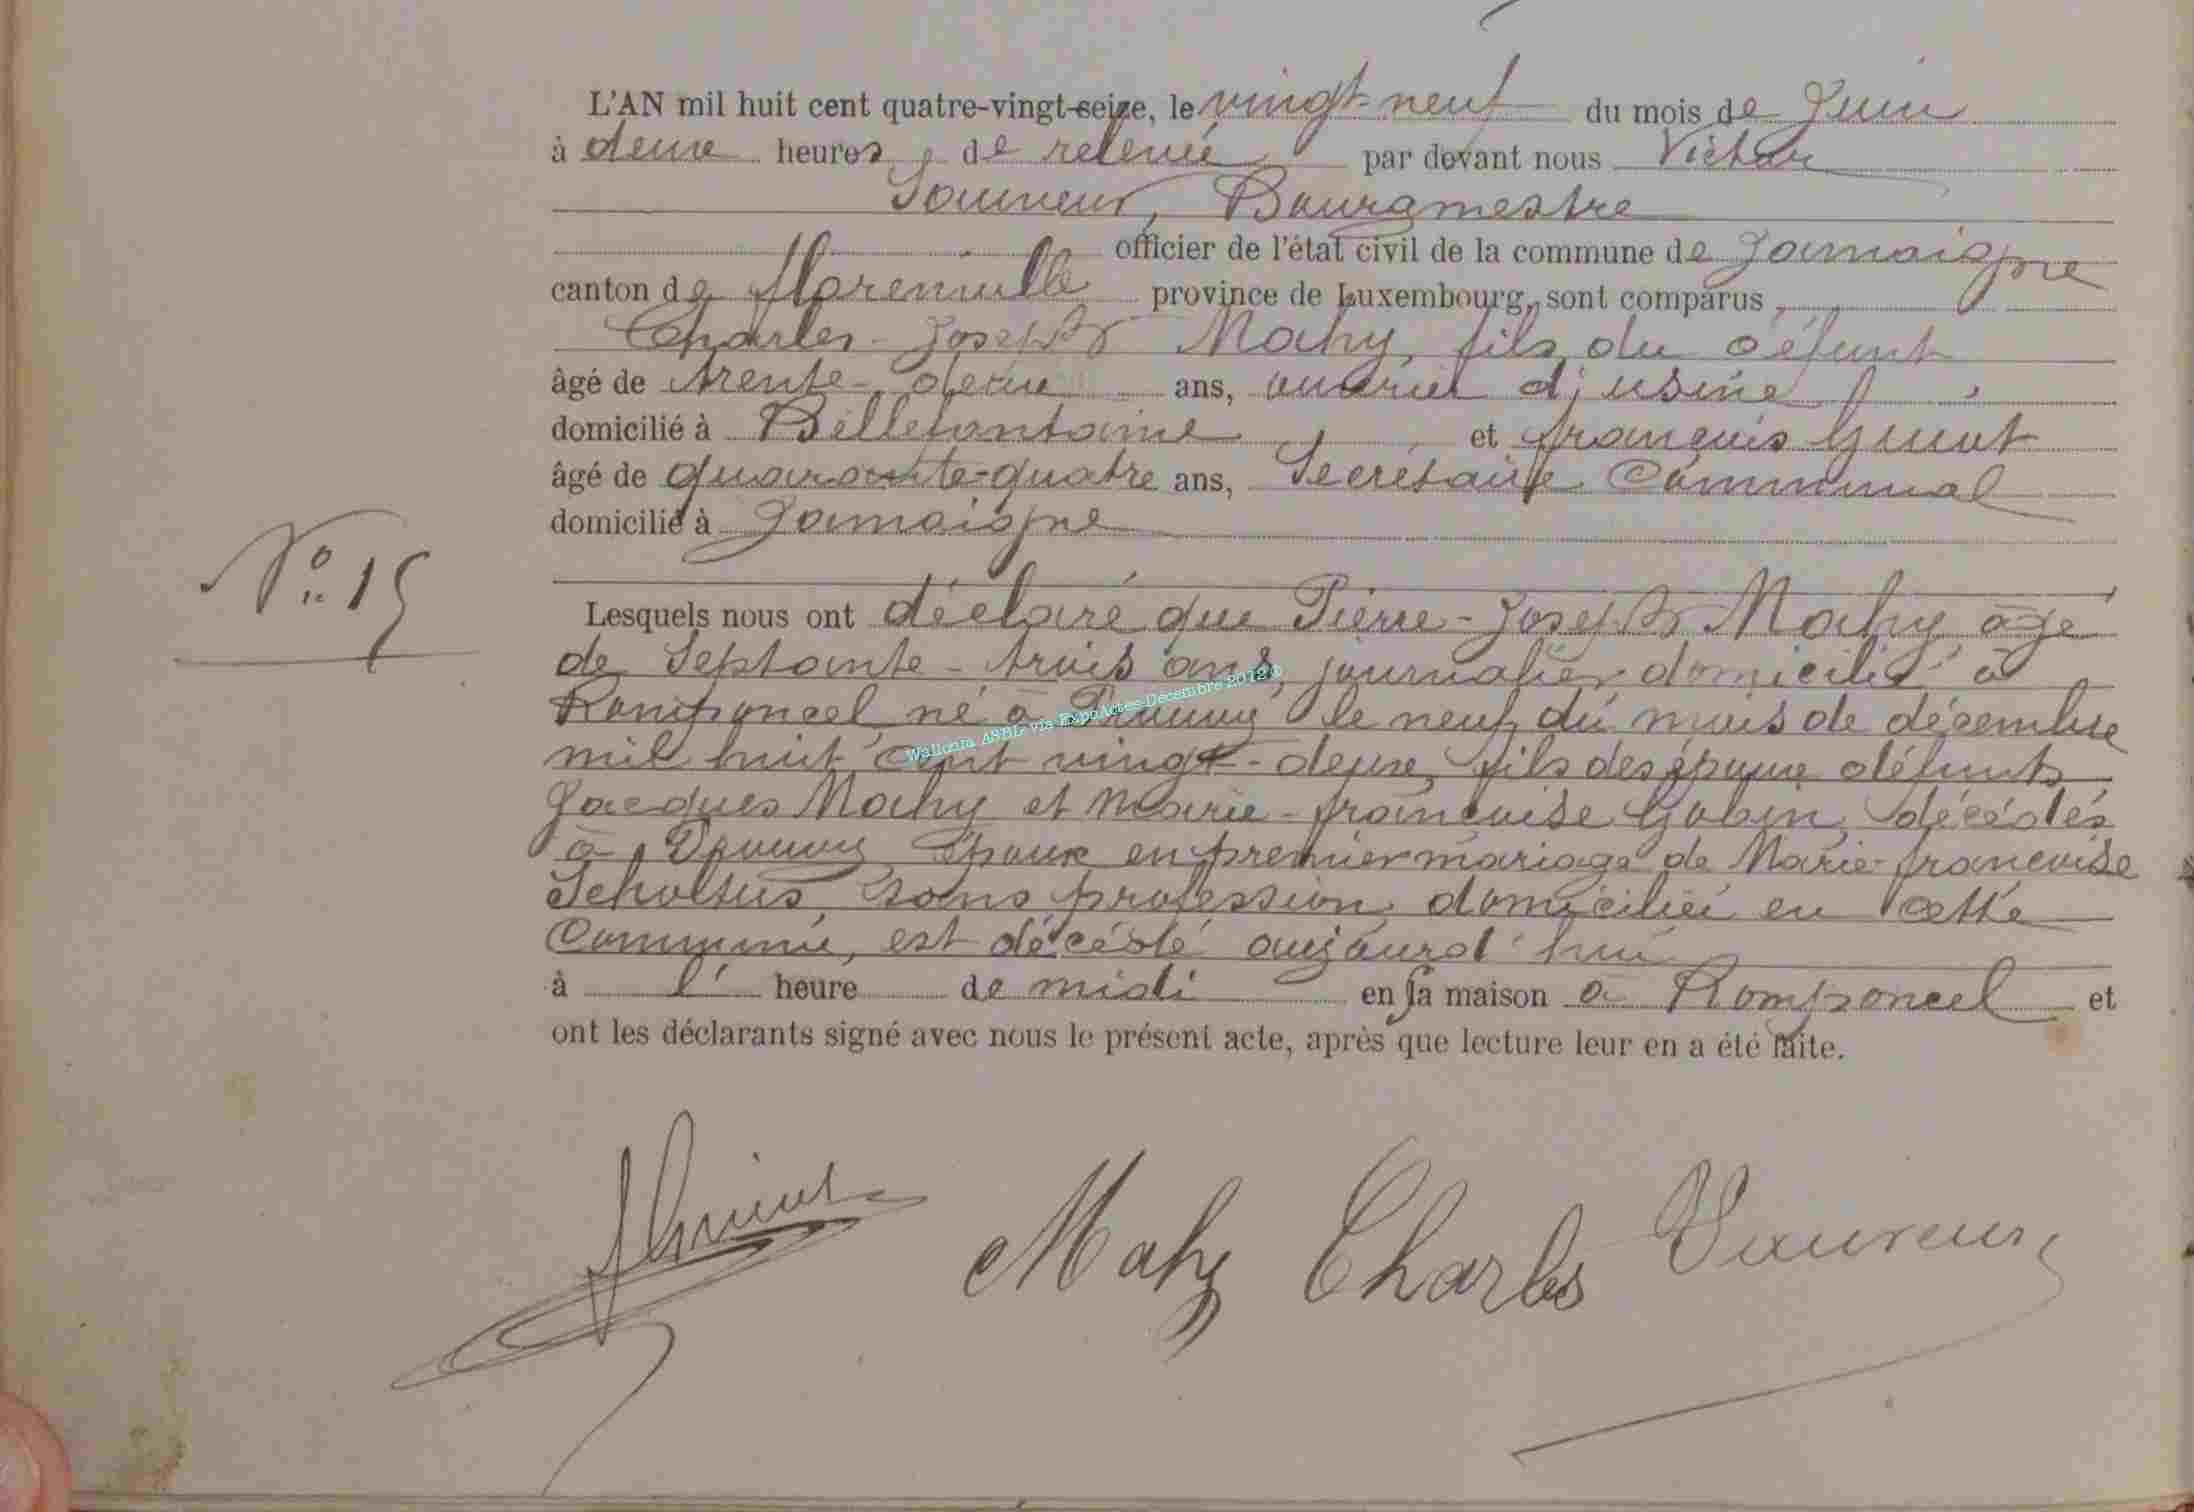 L'AN mil huit cent quatre-vingt-seize, le vingt-neuf du mois de Juin
à deux heures, de relevée par devant nous Victor
Sauveur, Bourgmestre
officier de l'état civil de la commune de Jamoigne
canton de florenville province de Luxembourg, sont comparus
Charles-Joseph Mahy, fils du défunt
âgé de trente-deux ans, ouvrier d'usine
domicilié à Bellefontaine et françois
âgé de quarante-quatre ans, Secrétaire Communal
domicilié à Jamoigne
N° 15
Lesquels nous ont déclaré que Pierre-Joseph Mahy, âgé
de Septante-trois ans, journalier domicilié à
Romponcel né à le neuf du mois de décembre
mil huit cent vingt-deux, fils des époux défunts
Jacques Mahy et Marie-françoise Gobin, décédés
à époux en premier mariage de Marie-françoise
Scholtus, sans profession, domiciliée en cette
Commune, est décédé aujourd'hui
à l' heure de midi en sa maison à Romponcel et
ont les déclarants signé avec nous le présent acte, après que lecture leur en a été faite.
Mahy Charles Sauveur
Wallonia ASBL via ExpoActes-Décembre 2012 ©